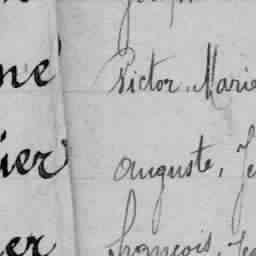 né Victor Marie
ier auguste, Je
er françois, Je